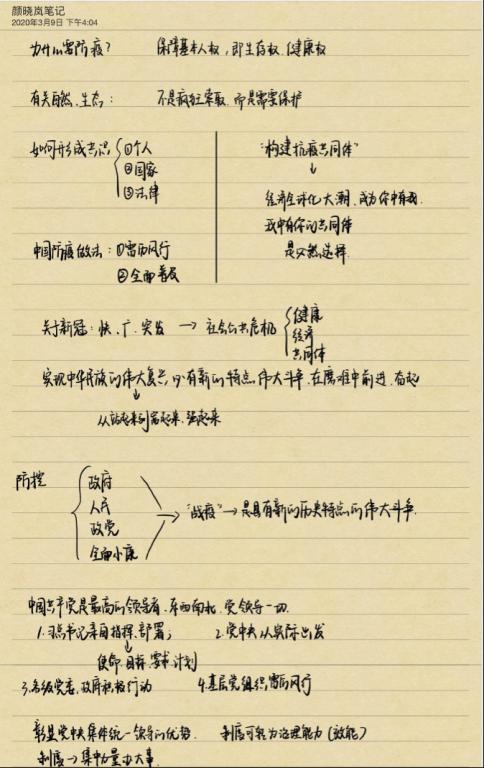 颜晓岚笔记
2020年3月9日 下午4:04
为什么需防疫？ 保障基本人权，即生存权、健康权
有关自然、生态： 不是疯狂索取，而是需要保护
如何形成共识 ①个人
②国家
③法律
"构建抗疫共同体"
↓
经济全球化大潮，成为你中有我
我中有你的共同体
是必然选择.
中国防疫做法：①雷厉风行
②全面普及
关于新冠：快、广、突发 → 社会公共危机 健康
经济
共同体
实现中华民族的伟大复兴，必有新的特点伟大斗争，在磨难中前进、奋起
↓
从站起来到富起来、强起来
防控 政府
人民
政党
全面小康
"战疫"→是具有新的历史特点的伟大斗争.
中国共产党是最高的领导者，东西南北，党领导一切.
1.习总书记亲自指挥、部署； 2.党中央从实际出发
↓
使命、目标、要求、计划
3.各级党委、政府积极行动 4.基层党组织雷厉风行
彰显党中央集体统一领导的优势. 制度可转为治理能力（效能）
制度→集中力量办大事.